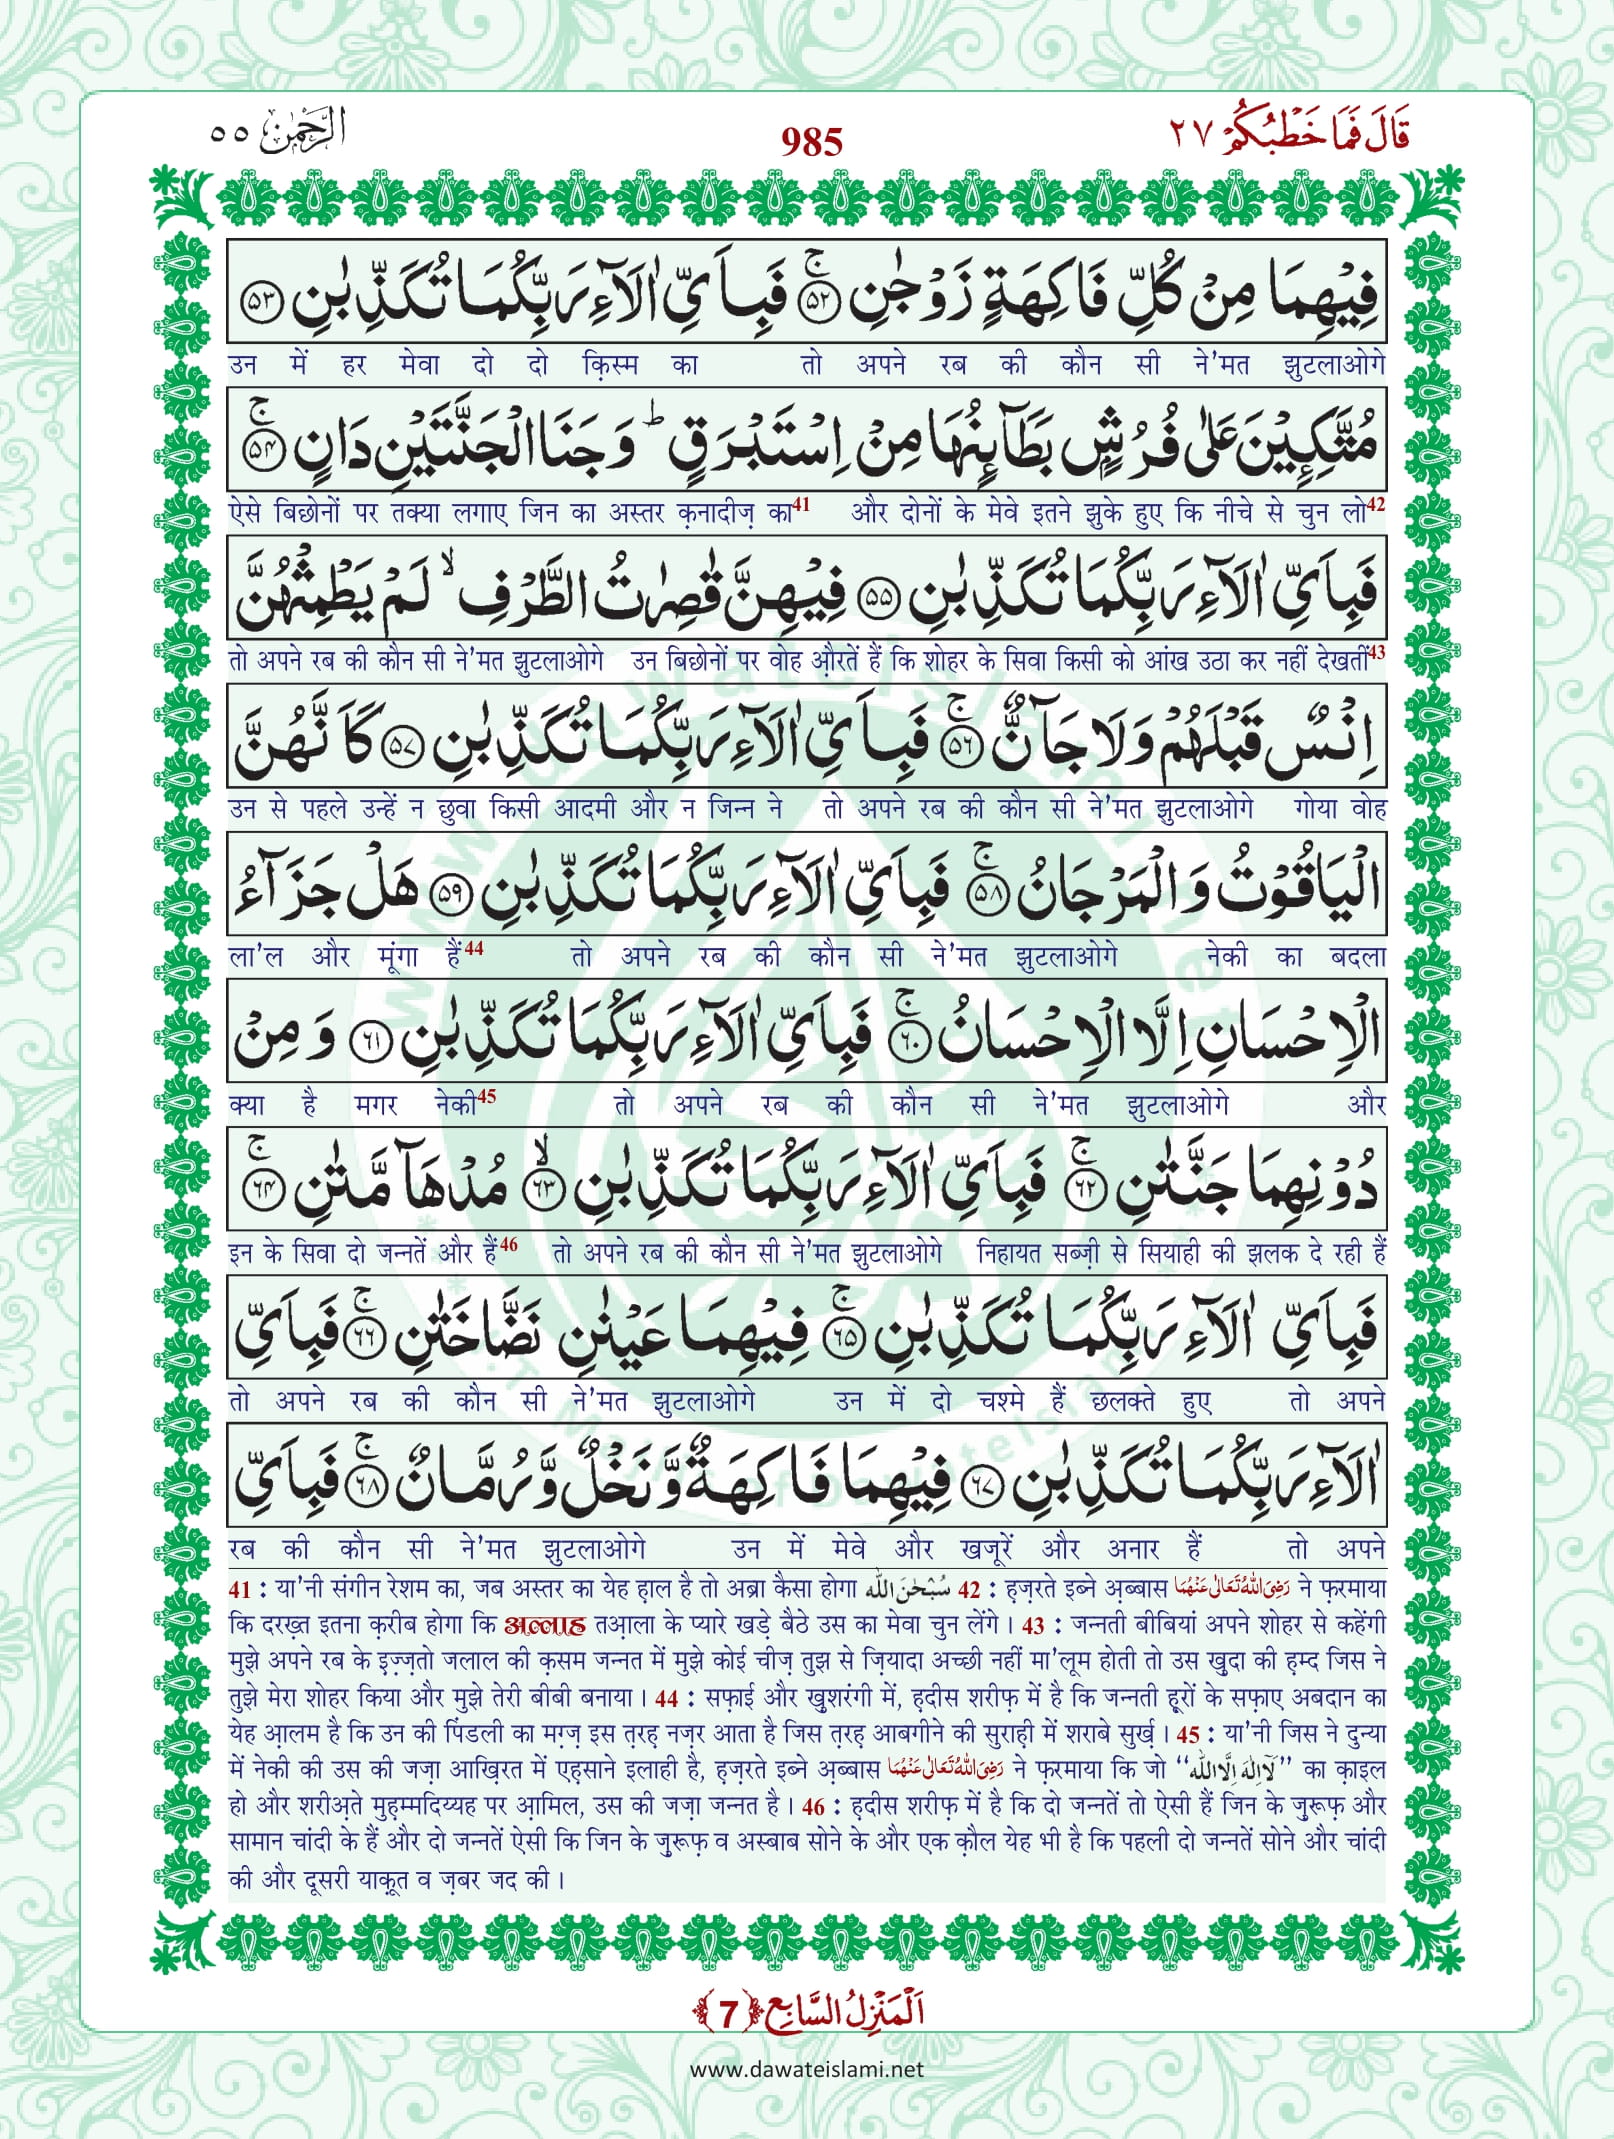 قَالَ فَمَا خَطْبُكُمْ ٢٧ 985 الرَّحْمٰن ٥٥
فِيْهِمَا مِنْ كُلِّ فَاكِهَةٍ زَوْجٰنِ ۚ﴿۵۲﴾ فَبِاَيِّ اٰلَآءِ رَبِّكُمَا تُكَذِّبٰنِ ﴿۵۳﴾
उन में हर मेवा दो दो क़िस्म का तो अपने रब की कौन सी ने'मत झुटलाओगे
مُتَّكِـِٕيْنَ عَلٰى فُرُشٍۭ بَطَآىِٕنُهَا مِنْ اِسْتَبْرَقٍ ؕ وَ جَنَا الْجَنَّتَيْنِ دَانٍ ۚ﴿۵۴﴾
ऐसे बिछोनों पर तक्या लगाए जिन का अस्तर क़नादीज़ का41 और दोनों के मेवे इतने झुके हुए कि नीचे से चुन लो42
فَبِاَيِّ اٰلَآءِ رَبِّكُمَا تُكَذِّبٰنِ ﴿۵۵﴾ فِيْهِنَّ قٰصِرٰتُ الطَّرْفِ ۙ لَمْ يَطْمِثْهُنَّ
तो अपने रब की कौन सी ने'मत झुटलाओगे उन बिछोनों पर वोह औ़रतें हैं कि शोहर के सिवा किसी को आंख उठा कर नहीं देखतीं43
اِنْسٌ قَبْلَهُمْ وَلَا جَآنٌّ ۚ﴿۵۶﴾ فَبِاَيِّ اٰلَآءِ رَبِّكُمَا تُكَذِّبٰنِ ﴿۵۷﴾ كَاَنَّهُنَّ
उन से पहले उन्हें न छुवा किसी आदमी और न जिन्न ने तो अपने रब की कौन सी ने'मत झुटलाओगे गोया वोह
الْيَاقُوْتُ وَ الْمَرْجَانُ ۚ﴿۵۸﴾ فَبِاَيِّ اٰلَآءِ رَبِّكُمَا تُكَذِّبٰنِ ﴿۵۹﴾ هَلْ جَزَآءُ
ला'ल और मूंगा हैं44 तो अपने रब की कौन सी ने'मत झुटलाओगे नेकी का बदला
الْاِحْسَانِ اِلَّا الْاِحْسَانُ ۚ﴿۶۰﴾ فَبِاَيِّ اٰلَآءِ رَبِّكُمَا تُكَذِّبٰنِ ﴿۶۱﴾ وَ مِنْ
क्या है मगर नेकी45 तो अपने रब की कौन सी ने'मत झुटलाओगे और
دُوْنِهِمَا جَنَّتٰنِ ۚ﴿۶۲﴾ فَبِاَيِّ اٰلَآءِ رَبِّكُمَا تُكَذِّبٰنِ ۙ﴿۶۳﴾ مُدْهَآمَّتٰنِ ۚ﴿۶۴﴾
इन के सिवा दो जन्नतें और हैं46 तो अपने रब की कौन सी ने'मत झुटलाओगे निहायत सब्ज़ी से सियाही की झलक दे रही हैं
فَبِاَيِّ اٰلَآءِ رَبِّكُمَا تُكَذِّبٰنِ ۚ﴿۶۵﴾ فِيْهِمَا عَيْنٰنِ نَضَّاخَتٰنِ ۚ﴿۶۶﴾ فَبِاَيِّ
तो अपने रब की कौन सी ने'मत झुटलाओगे उन में दो चश्मे हैं छलक्ते हुए तो अपने
اٰلَآءِ رَبِّكُمَا تُكَذِّبٰنِ ﴿۶۷﴾ فِيْهِمَا فَاكِهَةٌ وَّ نَخْلٌ وَّ رُمَّانٌ ۚ﴿۶۸﴾ فَبِاَيِّ
रब की कौन सी ने'मत झुटलाओगे उन में मेवे और खजूरें और अनार हैं तो अपने
41 : या'नी संगीन रेशम का, जब अस्तर का येह ह़ाल है तो अब्रा कैसा होगा سُبْحٰنَ اللّٰه 42 : ह़ज़रते इब्ने अ़ब्बास رَضِىَ اللّٰهُ تَعَالٰى عَنْهُمَا ने फ़रमाया
कि दरख़्त इतना क़रीब होगा कि अल्लाह तआ़ला के प्यारे खड़े बैठे उस का मेवा चुन लेंगे । 43 : जन्नती बीबियां अपने शोहर से कहेंगी
मुझे अपने रब के इ़ज़्ज़तो जलाल की क़सम जन्नत में मुझे कोई चीज़ तुझ से ज़ियादा अच्छी नहीं मा'लूम होती तो उस ख़ुदा की ह़म्द जिस ने
तुझे मेरा शोहर किया और मुझे तेरी बीबी बनाया । 44 : सफ़ाई और ख़ुशरंगी में, ह़दीस शरीफ़ में है कि जन्नती हूरों के सफ़ाए अबदान का
येह आ़लम है कि उन की पिंडली का मग़्ज़ इस त़रह़ नज़र आता है जिस त़रह़ आबगीने की सुराह़ी में शराबे सुर्ख़ । 45 : या'नी जिस ने दुन्या
में नेकी की उस की जज़ा आख़िरत में एह़साने इलाही है, ह़ज़रते इब्ने अ़ब्बास رَضِىَ اللّٰهُ تَعَالٰى عَنْهُمَا ने फ़रमाया कि जो ‘‘لَآ اِلٰهَ اِلَّا اللّٰه’’ का क़ाइल
हो और शरीअ़ते मुह़म्मदिय्यह पर आ़मिल, उस की जज़ा जन्नत है । 46 : ह़दीस शरीफ़ में है कि दो जन्नतें तो ऐसी हैं जिन के ज़ुरूफ़ और
सामान चांदी के हैं और दो जन्नतें ऐसी कि जिन के ज़ुरूफ़ व अस्बाब सोने के और एक क़ौल येह भी है कि पहली दो जन्नतें सोने और चांदी
की और दूसरी याक़ूत व ज़बर जद की ।
اَلْمَنْزِلُ السَّابِع ﴿7﴾
www.dawateislami.net